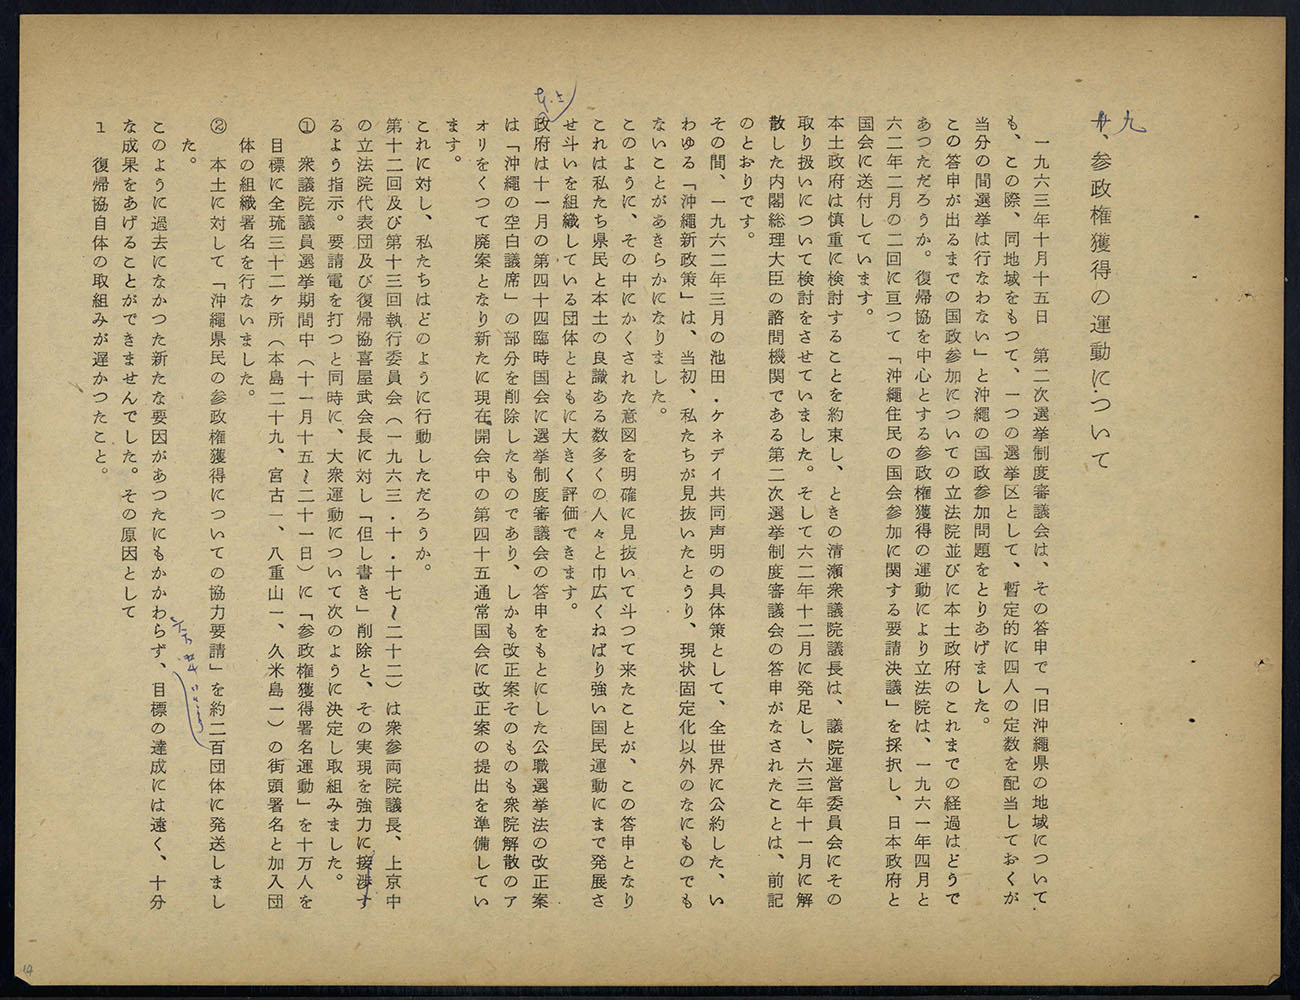 九
、参政権獲得の運動について
一九六三年十月十五日　第二次選挙制度審議会は、その答申で「旧沖縄県の地域について
も、この際、同地域をもつて、一つの選挙区として、暫定的に四人の定数を配当しておくが
当分の間選挙は行なわない」と沖縄の国政参加問題をとりあげました。
この答申が出るまでの国政参加についての立法院並びに本土政府のこれまでの経過はどうで
あつただろうか。復帰協を中心とする参政権獲得の運動により立法院は、一九六一年四月と
六二年二月の二回に亘つて「沖縄住民の国会参加に関する要請決議」を採択し、日本政府と
国会に送付しています。
本土政府は慎重に検討することを約束し、ときの清瀬衆議院議長は、議院運営委員会にその
取り扱いについて検討をさせていました。そして六二年十二月に発足し、六三年十一月に解
散した内閣総理大臣の諮問機関である第二次選挙制度審議会の答申がなされたことは、前記
のとおりです。
その間、一九六二年三月の池田・ケネデイ共同声明の具体策として、全世界に公約した、い
わゆる「沖縄新政策」は、当初、私たちが見抜いたとうり、現状固定化以外のなにものでも
ないことがあきらかになりました。
このように、その中にかくされた意図を明確に見抜いて斗つて来たことが、この答申となり
これは私たち県民と本土の良識ある数多くの人々と巾広くねばり強い国民運動にまで発展さ
せ斗いを組織している団体とともに大きく評価できます。
政府は十一月の第四十四臨時国会に選挙制度審議会の答申をもとにした公職選挙法の改正案
は「沖縄の空白議席」の部分を削除したものであり、しかも改正案そのものも衆院解散のア
オリをくつて廃案となり新たに現在開会中の第四十五通常国会に改正案の提出を準備してい
ます。
これに対し、私たちはどのように行動しただろうか。
第十二回及び第十三回執行委員会（一九六三・十・十七～二十二）は衆参両院議長、上京中
の立法院代表団及び復帰協喜屋武会長に対し「但し書き」削除と、その実現を強力に接渉す
るよう指示。要請電を打つと同時に、大衆運動について次のように決定し取組みました。
①　衆議院議員選挙期間中（十一月十五～二十一日）に「参政権獲得署名運動」を十万人を
目標に全琉三十二ケ所（本島二十九、宮古一、八重山一、久米島一）の街頭署名と加入団
体の組織署名を行ないました。
②　本土に対して「沖縄県民の参政権獲得についての協力要請」を約二百団体に発送しまし
た。
このように過去になかつた新たな要因があつたにもかかわらず、目標の達成には遠く、十分
な成果をあげることができませんでした。その原因として
１　復帰協自体の取組みが遅かつたこと。
14